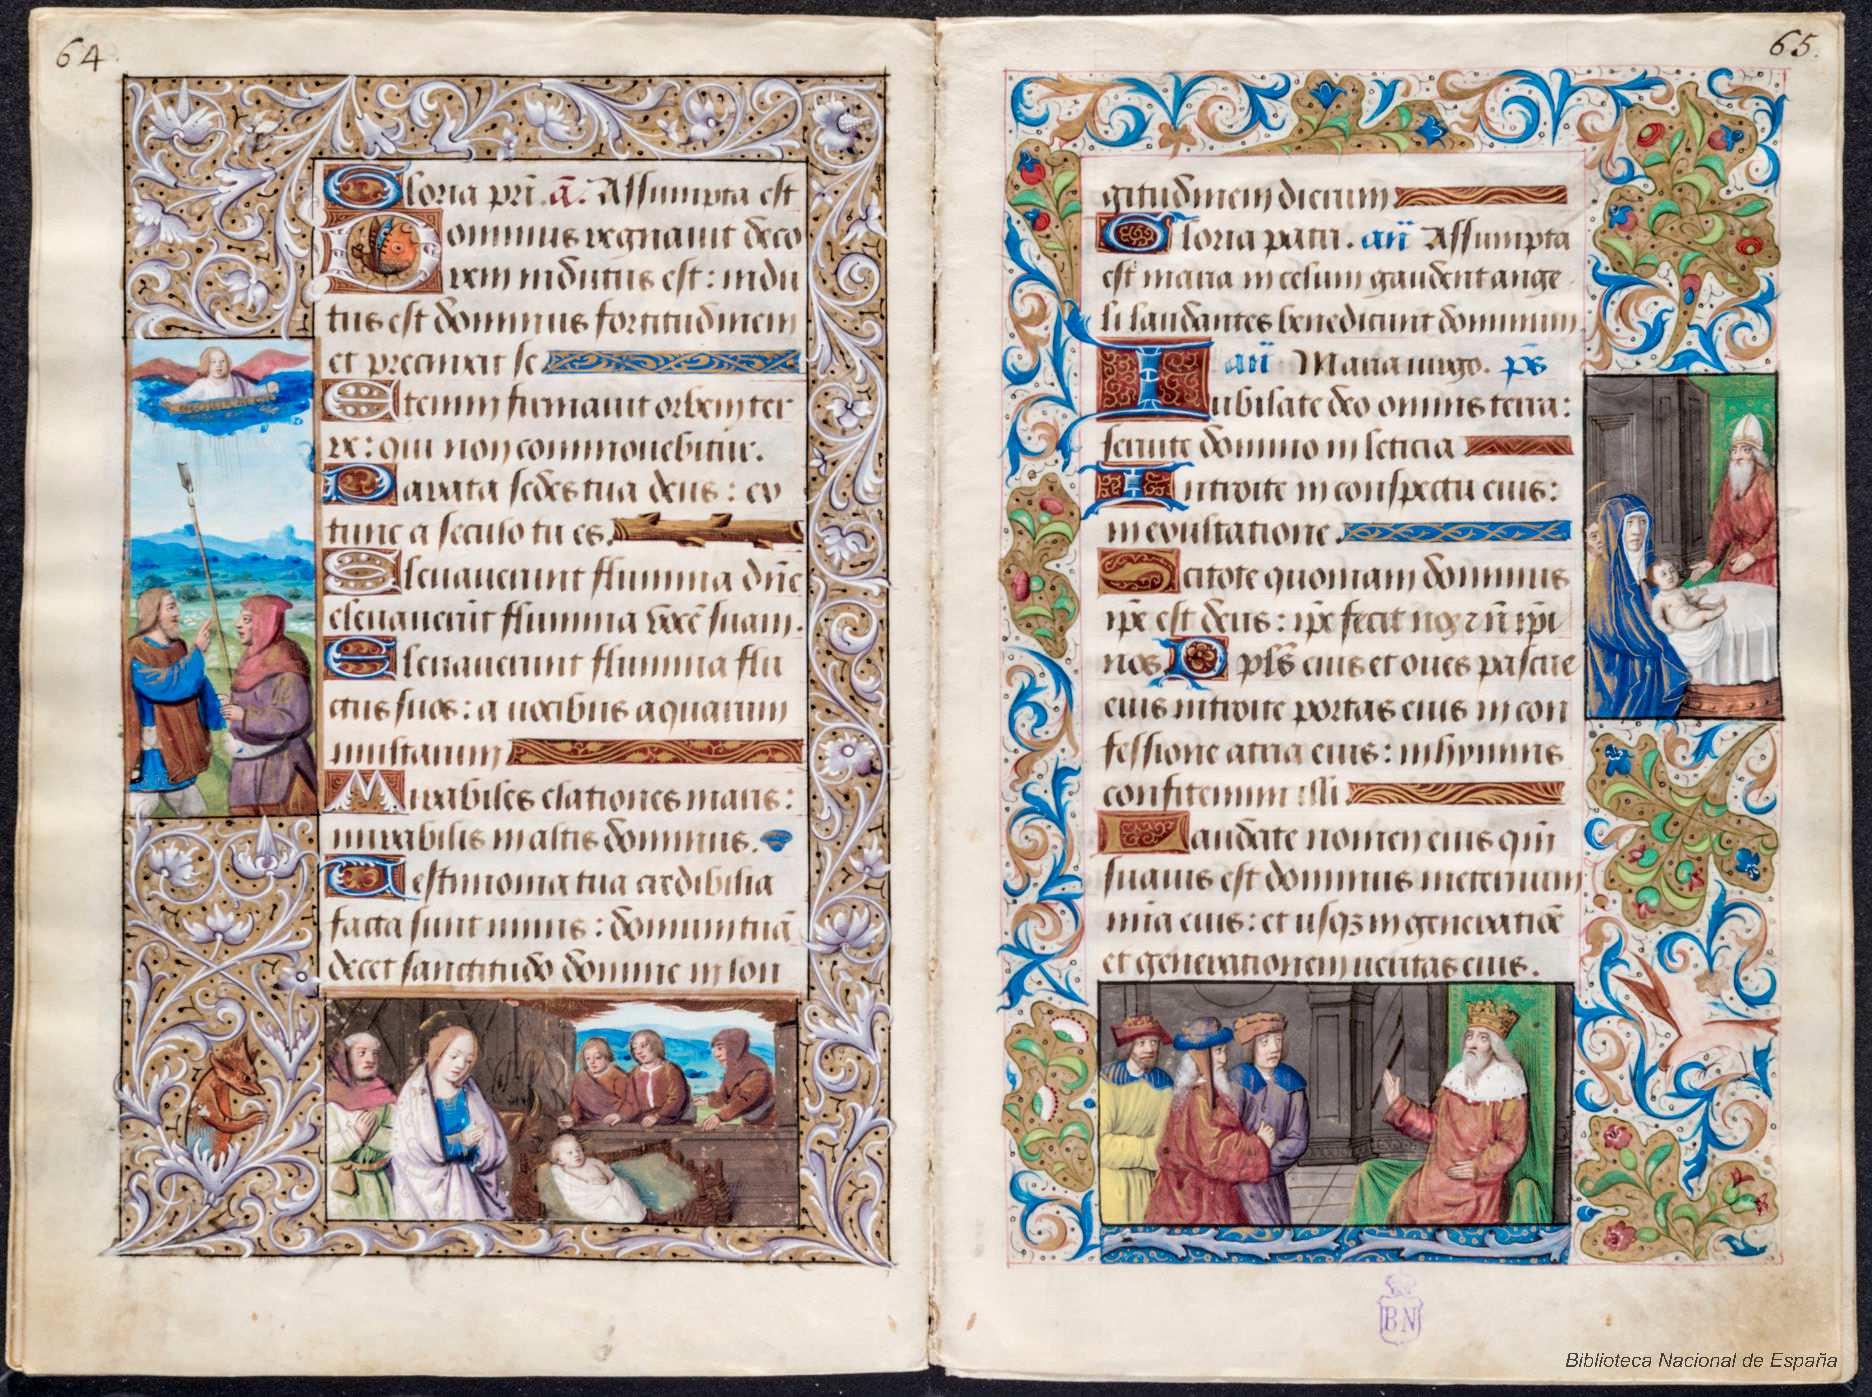 64
Gloria pri. a. Assumpta est
Dominus regnauit deco
rem indutus est: indu
tus est dominus fortitudinem
et precinxit se
Etenim firmauit orbem ter
re: qui non commouebitur.
Parata sedes tua deus: ex
tunc a seculo tu es.
Eleuauerunt flumina dñe
eleuauerũt flumina vocẽ suam.
Eleuauerunt flumina flu
ctus suos: a uocibus aquarum
multarum
Mirabiles elationes maris:
mirabilis in altis dominus.
Testimonia tua credibilia
facta sunt nimis: domum tuã
decet sanctitudo domine in lon
65.
gitudinem dierum
Gloria patri. añ Assumpta
est maria in celum gaudent ange
li laudantes benedicunt dominum
añ Maria uirgo. ps
Iubilate deo omnis terra:
seruite domino in leticia
Introite in conspectu eius:
in exultatione.
Scitote quoniam dominus
ip̃e est deus: ip̃e fecit nos ⁊ nõ ip̃i
nos Pop̃ls eius et oues pascue
eius introite portas eius in con
fessione atria eius: in hymnis
confitemini illi
Laudate nomen eius qm̃
suauis est dominus in eternum
mĩa eius: et usqꝫ in generatiõe
et generationem ueritas eius.
BN
Biblioteca Nacional de España